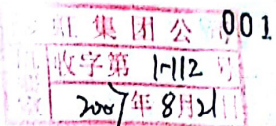 红集团公 001
收字第 1-112 号
2007年8月21日